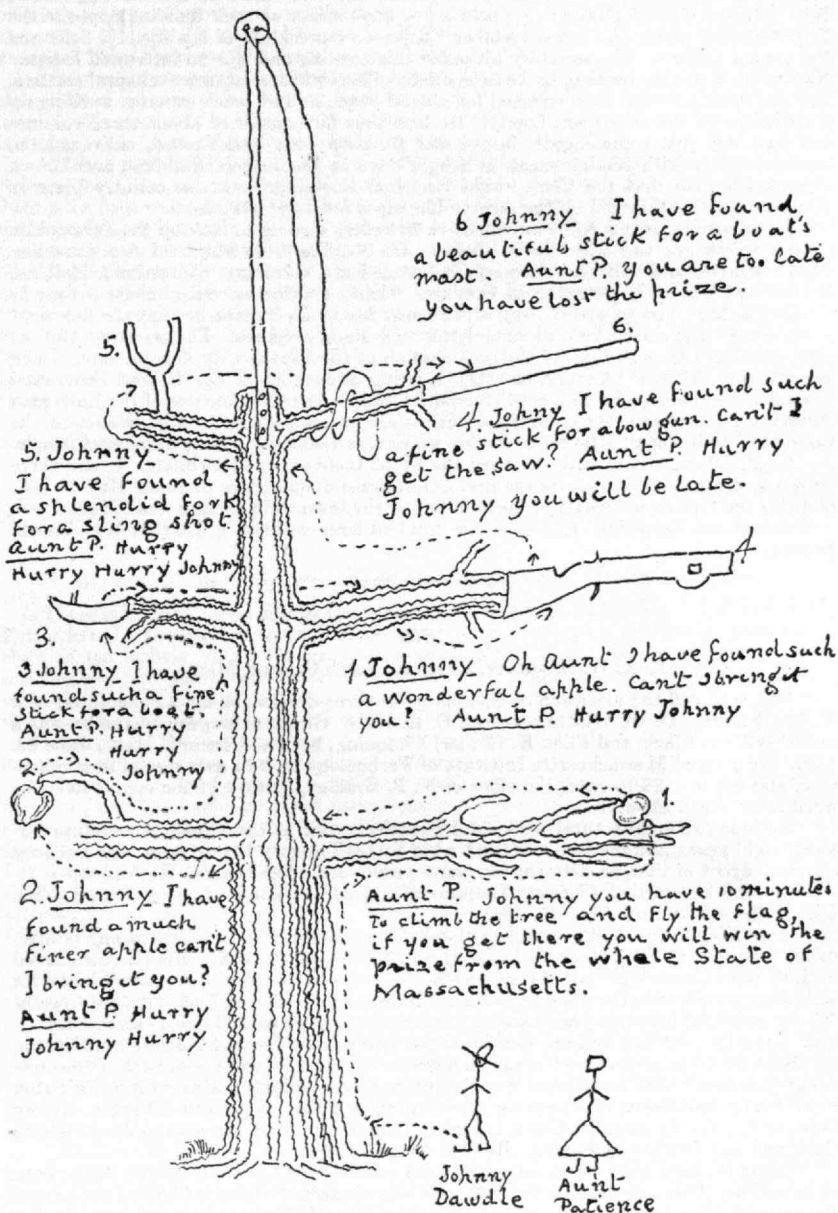 6. Johnny I have found
a beautiful stick for a boat's
mast. Aunt P. you are too late
you have lost the prize.
6.
5.
4. Johny I have found such
a fine stick for a bow gun. Can't I
get the saw? Aunt P. Hurry
Johnny you will be late.
5. Johnny
I have found
a splendid fork
for a sling shot.
Aunt P. Hurry
Hurry Hurry Johnny
4
3.
3 Johnny I have
found such a fine
stick for a boat.
Aunt P. Hurry
Hurry
Johnny
1 Johnny Oh Aunt I have found such
a wonderful apple. Can't I bring it
you? Aunt P. Hurry Johnny
2.
1.
2. Johnny I have
found a much
finer apple can't
I bring it you?
Aunt P. Hurry
Johnny Hurry
Aunt P. Johnny you have 10 minutes
to climb the tree and fly the flag,
if you get there you will win the
prize from the whole State of
Massachusetts.
Johnny
Dawdle
Aunt
Patience